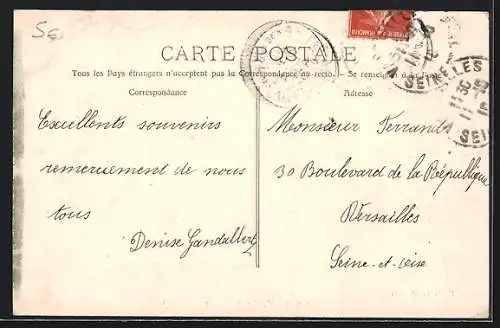 56
CARTE POSTALE
Tous les Pays étrangers n'acceptent pas la Correspondance au recto. Se renseigner à la Poste
Correspondance
Adresse
Excellents souvenirs
remerciement de nous
tous
Denise
Monsieur Ferrand
30 Boulevard de la République
Versailles
Seine-et-Oise